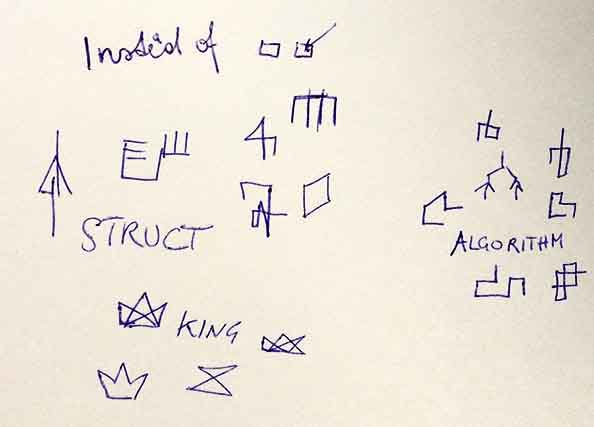 Instéd of
STRUCT
ALGORITHM
KING